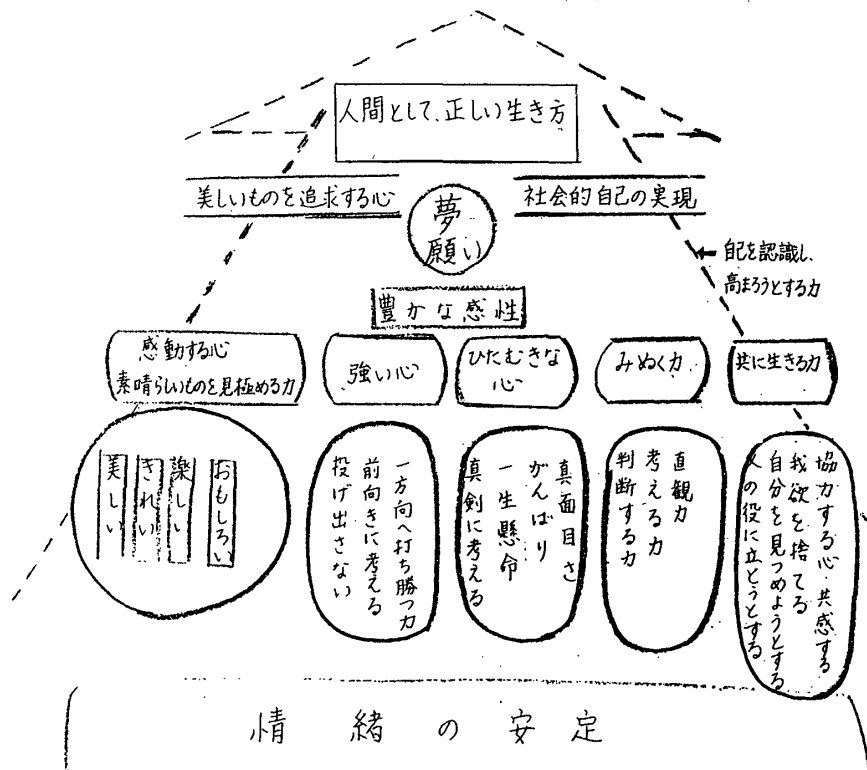 人間として、正しい生き方
美しいものを追求する心
夢
願い
社会的自己の実現
自己を認識し、
高まろうとする力
豊かな感性
感動する心
素晴らしいものを見極める力
強い心
ひたむきな
心
みぬく力
共に生きる力
おもしろい
楽しい
きれい
美しい
一方向へ打ち勝つ力
前向きに考える
投げ出さない
真面目さ
がんばり
一生懸命
真剣に考える
直観力
考える力
判断する力
協力する心・共感する
我欲を捨てる
自分を見つめようとする
人の役に立とうとする
情緒の安定